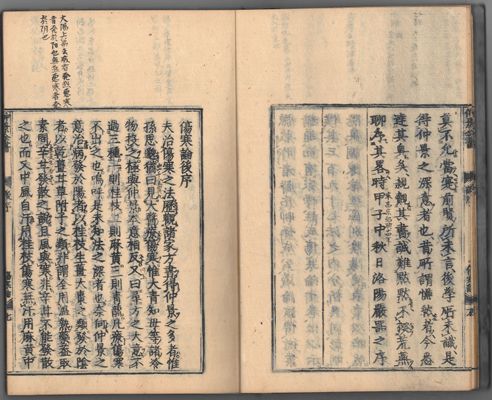 莫不允當實前賢所未言後學所未識是
得仲景之深意者也昔所謂慊然者今悉
達其奧矣親覩其書誠難默默不揆荒蕪
聊序其畧時甲子中秋日洛陽嚴器之序
傷寒論後序
夫治傷寒之法歷觀諸家方書得仲景之多者惟
孫思邈猶曰見大醫療傷寒惟大青知母等諸冷
物投之極與仲景本意相反又曰尋方之大意不
過三種一則桂枝二則麻黃三則青龍凡療傷寒
不出之也嗚呼是未知法之深者也奈何仲景之
意治病發於陽者以桂枝生薑大棗之類發於陰
者以乾薑甘草附子之類非謂全用溫熱藥蓋取
素問辛甘發散之說且風與寒非辛甘不能發散
之也而又中風自汗用桂枝傷寒無汗用麻黃中